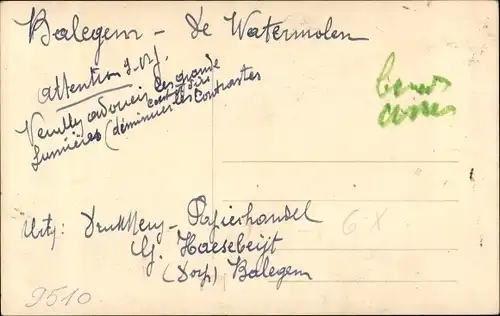 Balegem - De Watermolen
attention S.V.P.
Veuillez adoucir les grande
lumières (diminuer les contrastes
Uitg: Drukkerij - Papierhandel
G. Haesebeijt
(Dorp) Balegem
6-X
9510